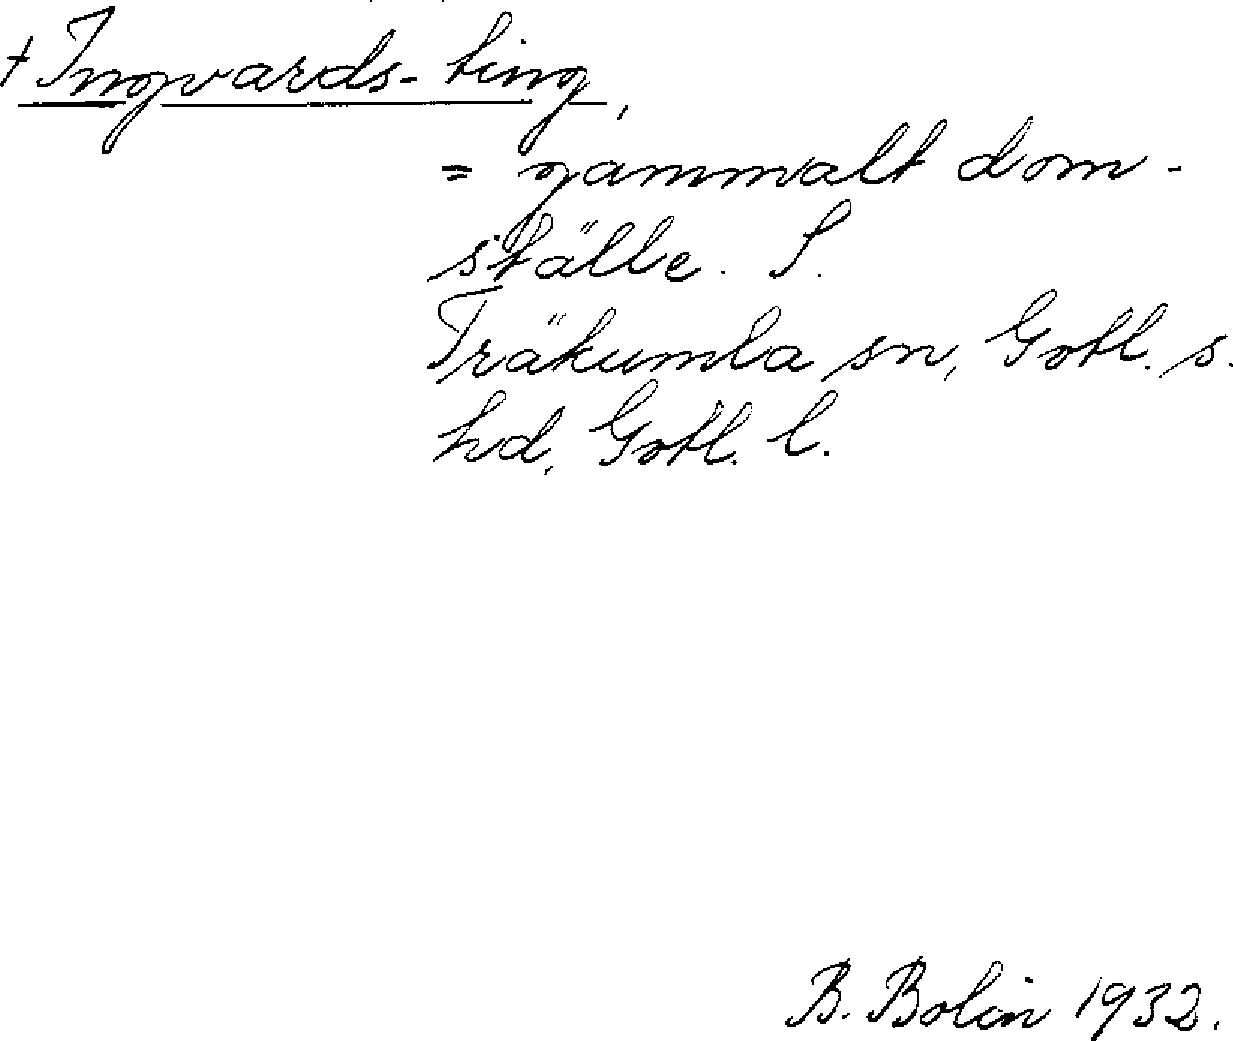 † Ingvards-ting,
= gammalt dom-
ställe. S.
Träkumla sn, Gotl. s.
hd, Gotl. l.
B. Bolin 1932.